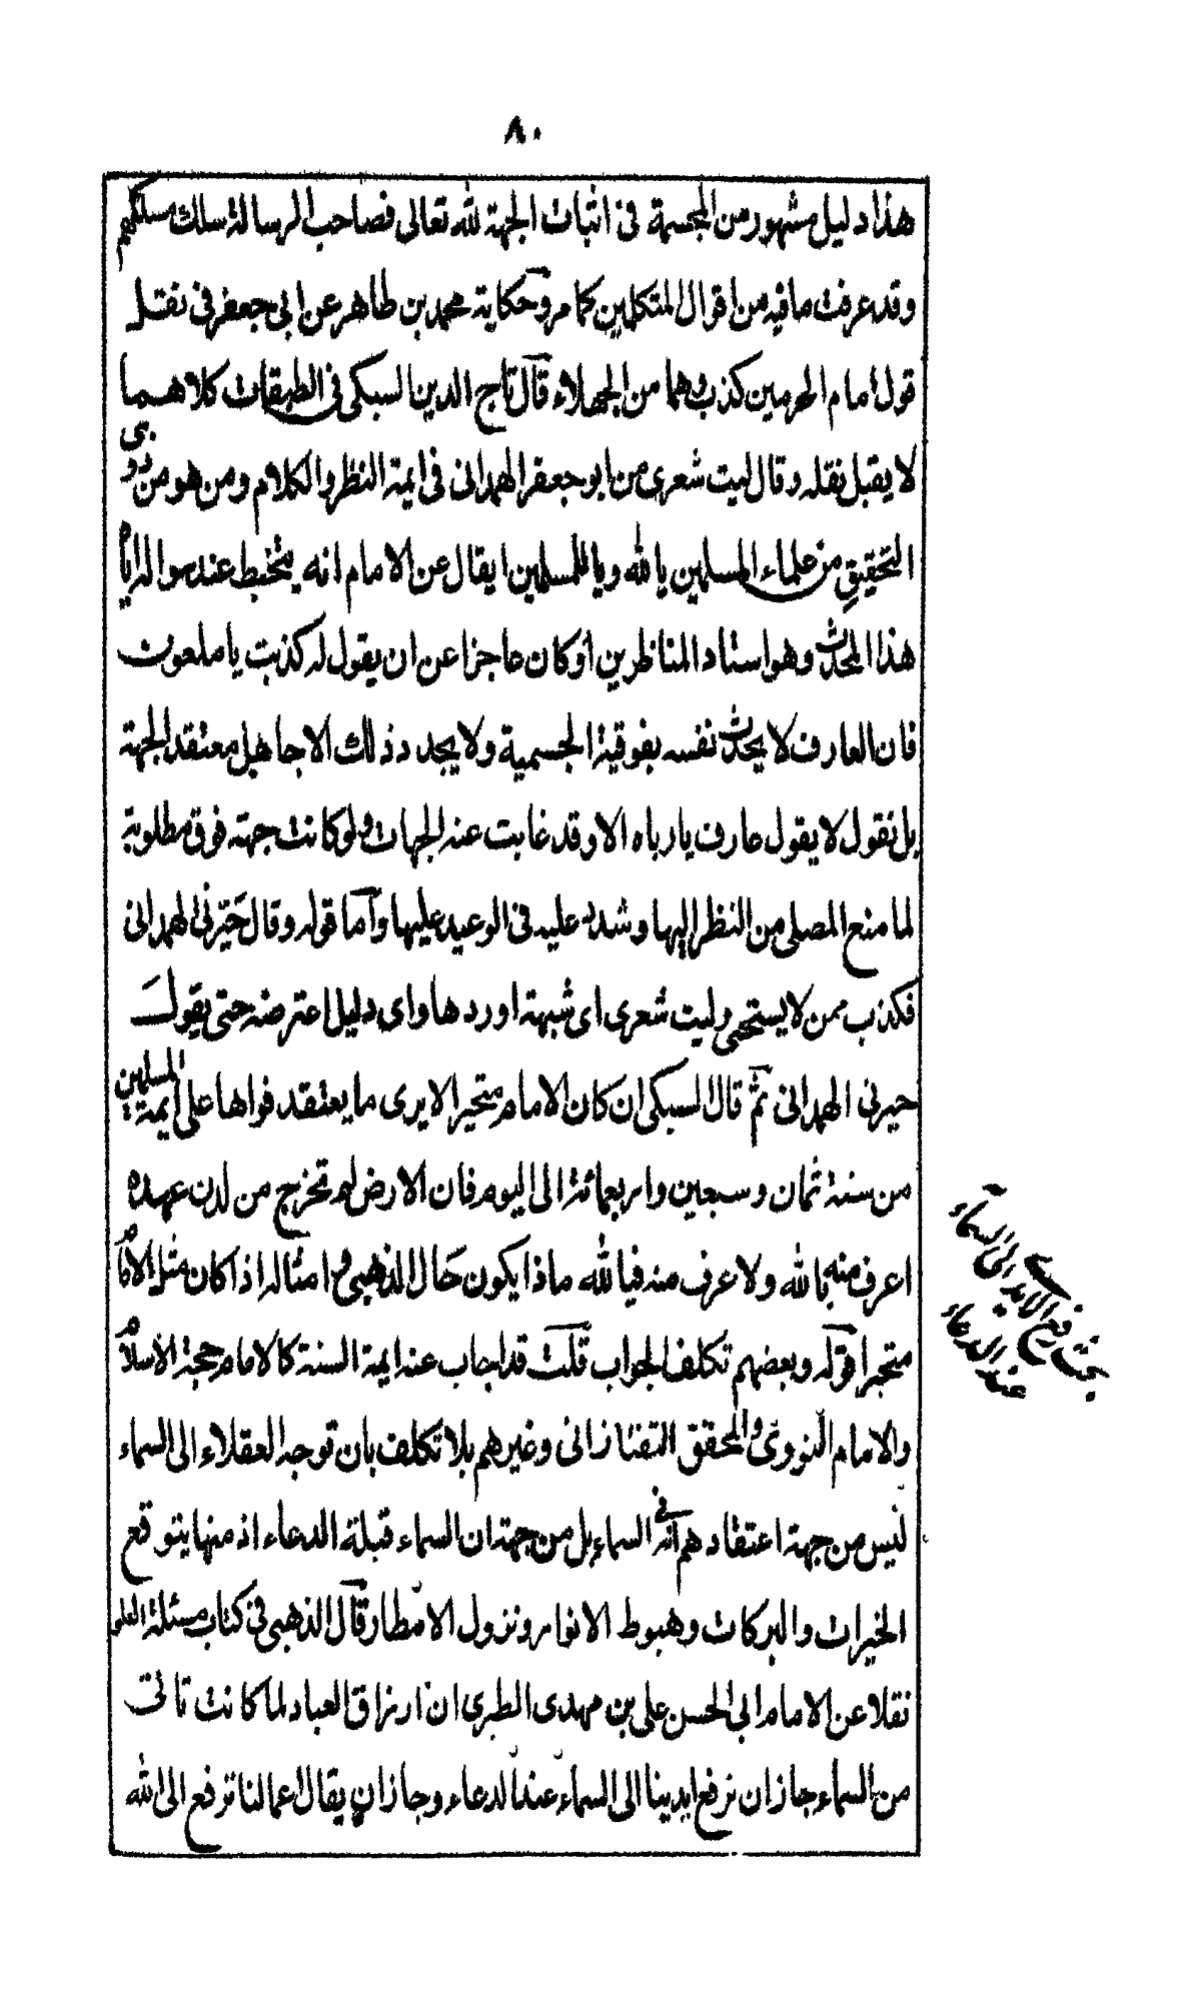 ٨٠
هذا دليل مشهور من المجسمة فى اثبات الجهة لله تعالى فصاحب الرسالة سلك مسلكهم
وقد عرفت ما فيه من اقوال المتكلمين كما مر وحكاية محمد بن طاهر عن ابى جعفر فى نقل
قول امام الحرمين كذب وهما من الجهلاء قال تاج الدين السبكى فى الطبقات كلاهما
لا يقبل نقله وقال ليت شعرى من ابو جعفر الهمدانى فى ايمة النظر والكلام ومن هو من ذوى
التحقيق من علماء المسلمين يا لله ويا للمسلمين ايقال عن الامام انه يتخبط عند سوال اياه
هذا المحدث وهو استاد المناظرين اوكان عاجزا عن ان يقول له كذبت يا ملعون
فان العارف لا يحدث نفسه بفوقية الجسمية ولا يحدد ذلك الا جاهل معتقد الجهة
بل نقول لا يقول عارف يا رباه الا وقد غابت عنه الجهات ولو كانت جهة فوق مطلوبة
لما منع المصلى من النظر اليها وشدد عليه فى الوعيد عليها واما قوله وقال حيرنى الهمدانى
فكذب ممن لا يستحى وليت شعرى اى شبهة اوردها واى دليل اعترضه حتى يقول
حيرنى الهمدانى ثم قال السبكى ان كان الامام متحيرا لا يرى ما يعتقد فواها على ايمة المسلمين
من سنة ثمان وسبعين واربعمائة الى اليوم فان الارض لم تخرج من لدن عهده
اعرف منه بالله ولا عرف منه فيا لله ماذا يكون حال الذهبى وامثاله اذا كان مثل الامام
متحيرا قوله وبعضهم تكلف الجواب قلت قد اجاب عنه ايمة السنة كالامام حجة الاسلام
والامام النووى والمحقق التفتازانى وغيرهم بلا تكلف بان توجه العقلاء الى السماء
ليس من جهة اعتقادهم انه فى السماء بل من جهة ان السماء قبلة الدعاء اذ منها يتوقع
الخيرات والبركات وهبوط الانوار ونزول الامطار قال الذهبى فى كتاب مسئلة العلو
نقلا عن الامام ابى الحسن على بن مهدى الطبرى ان ارزاق العباد لما كانت تاتى
من السماء جاز ان نرفع ايدينا الى السماء عند الدعاء وجاز ان يقال اعمالنا ترفع الى الله
بحث رفع الايدى الى السماء
عند الدعاء